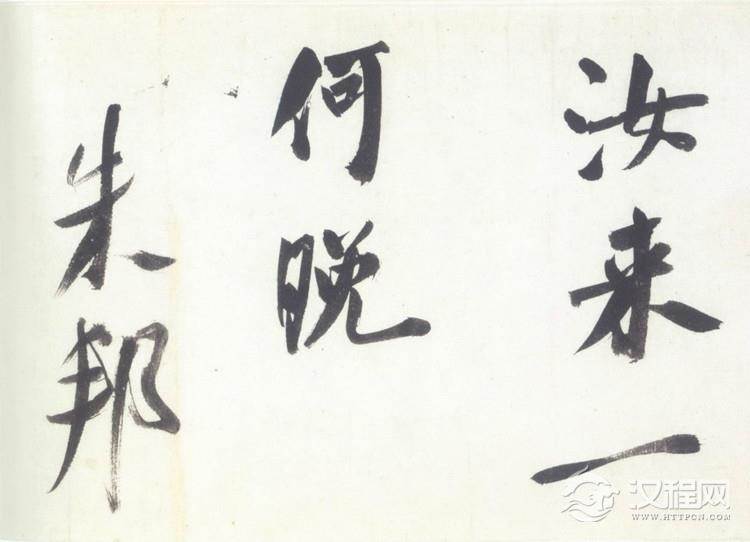 汝来一
何晚
朱邦
汉程网
WWW.HTTPCN.COM